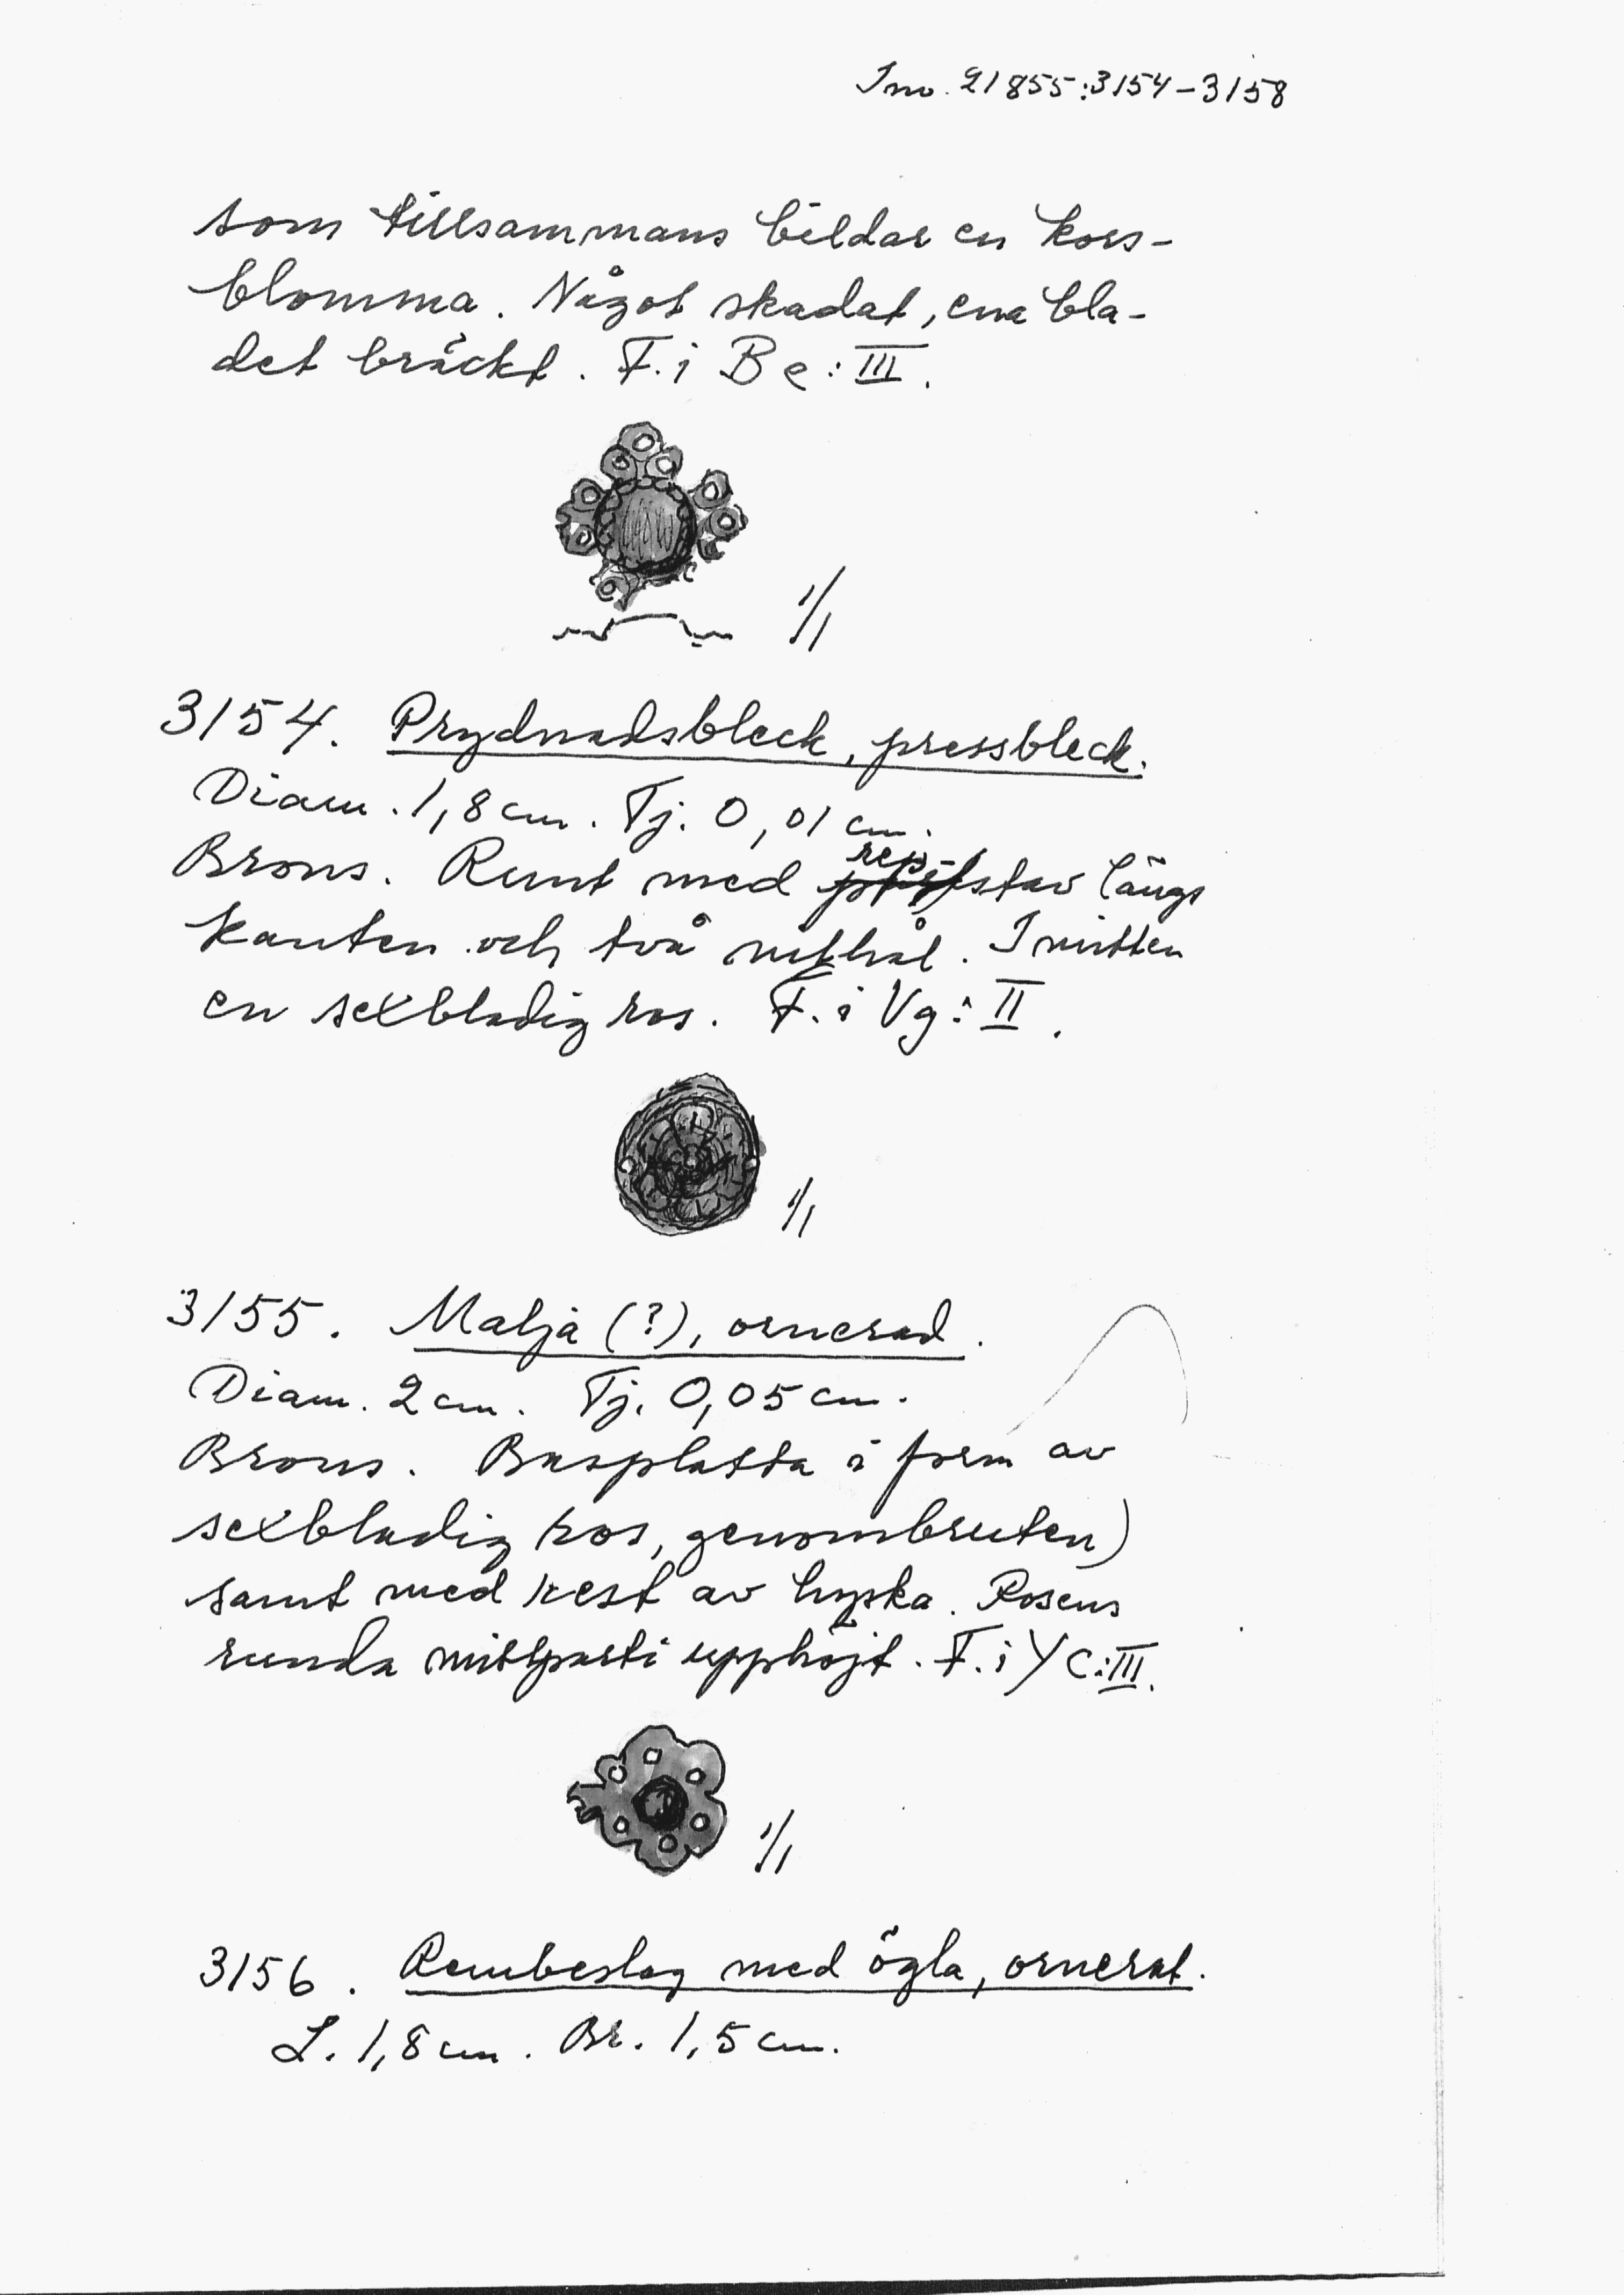 Inv. 21855:3154-3158
som tillsammans bildar en kors-
blomma. Något skadat, ena bla-
det bräckt. F. i Be: III.
1/1
3154. Prydnadsbleck, pressbleck.
Diam. 1,8 cm. Tj. 0,01 cm.
rep-
Brons. Runt med stav längs
kanten och två nithål. I mitten
en sexbladig ros. F. i Vg: II.
1/1
3155. Malja (?), ornerad.
Diam. 2 cm. Tj. 0,05 cm.
Brons. Basplatta i form av
sexbladig ros, genombruten)
samt med rest av hyska. Rosens
runda mittparti upphöjt. F. i Yc: III.
1/1
3156. Rembeslag med ögla, ornerat.
L. 1,8 cm. Br. 1,5 cm.